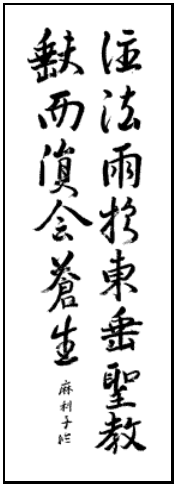 注法雨於東垂聖教
缺而復全蒼生
麻利子臨